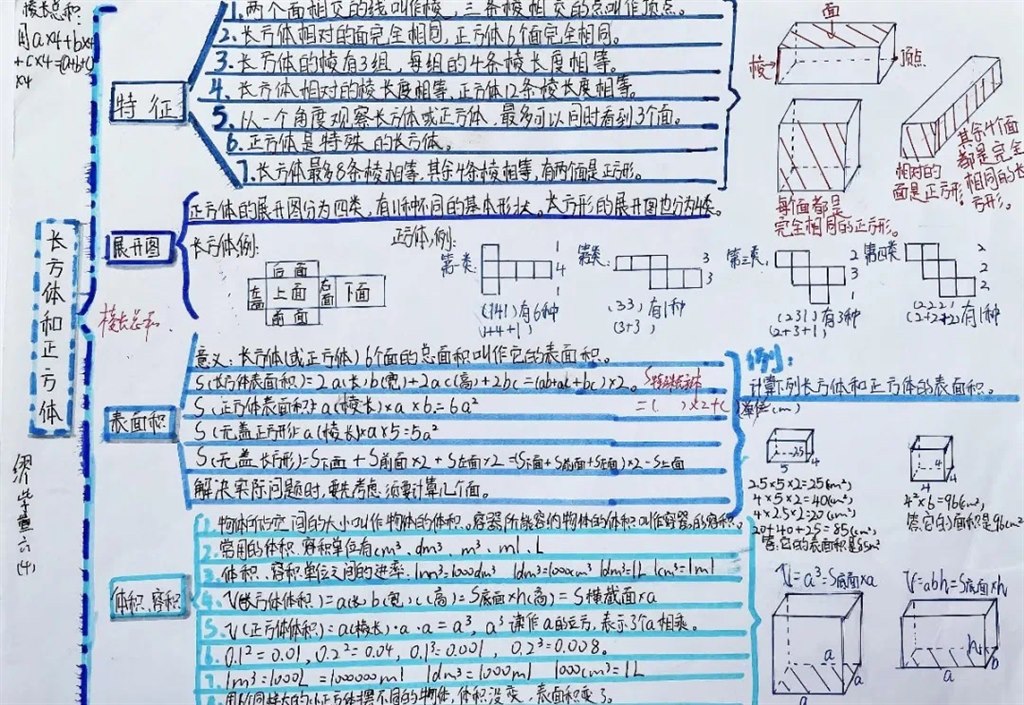 棱长总和:
用a×4+b×4
+c×4=(a+b+c)
×4
长方体和正方体
缪
六(4)
棱长总和.
特征
1.两个面相交的线叫作棱,三条棱相交的点叫作顶点。
2.长方体相对的面完全相同,正方体6个面完全相同。
3.长方体的棱有3组,每组的4条棱长度相等。
4.长方体相对的棱长度相等,正方体12条棱长度相等。
5.从一个角度观察长方体或正方体,最多可以同时看到3个面。
6.正方体是特殊的长方体。
7.长方体最多8条棱相等,其余4条棱相等,有两个面是正方形。
面
棱
顶点
每个面都是
完全相同的正方形。
相对的
面是正方形,
其余4个面
都是完全
相同的长
方形。
展开图
正方体的展开图分为四类,有11种不同的基本形状。长方形的展开图也分为4类。
长方体,例:
后面
左面
上面
右面
下面
前面
正方体,例:
第一类:
1
4
1
(141)有6种
(1+4+1)
第二类:
3
3
(33)有1种
(3+3)
第三类:
2
3
1
(231)有3种
(2+3+1)
第四类:
2
2
2
(222)有1种
(2+2+2)
表面积
意义:长方体(或正方体)6个面的总面积叫作它的表面积。
S(长方体表面积)=2a(长)b(宽)+2ac(高)+2bc=(ab+ac+bc)×2。
S特殊长方体
=( )×2+( )
S(正方体表面积)=a(棱长)×a×6=6a²
S(无盖正方形)=a(棱长)×a×5=5a²
S(无盖长方形)=S下面+S前面×2+S左面×2=(S下面+S前面+S左面)×2-S上面
解决实际问题时,要先考虑须要计算几个面。
例:
计算下列长方体和正方体的表面积。
单位(cm)
2.5
5
4
2.5×5×2=25(cm²)
4×5×2=40(cm²)
4×2.5×2=20(cm²)
20+40+25=85(cm²)
答:它的表面积是85cm²
4
4
4
4²×6=96(cm²)
答:它的面积是96cm²
体积、容积
1.物体所占空间的大小叫作物体的体积。容器所能容纳物体的体积叫作容器的容积。
2.常用的体积、容积单位有cm³、dm³、m³、ml、L
3.体积、容积单位之间的进率:1m³=1000dm³ 1dm³=1000cm³ 1dm³=1L 1cm³=1ml
4.V(长方体体积)=a(长)b(宽)c(高)=S底面×h(高)=S横截面×a
5.V(正方体体积)=a(棱长)·a·a=a³,a³读作a的立方,表示3个a相乘。
6.0.1²=0.01,0.2²=0.04,0.1³=0.001,0.2³=0.008。
7.1m³=1000L=1000000ml 1dm³=1000ml 1000cm³=1L
8.用几个同样大的小正方体摆不同的物体,体积没变,表面积变了。
V=a³=S底面×a
a
a
a
V=abh=S底面×h
h
b
a